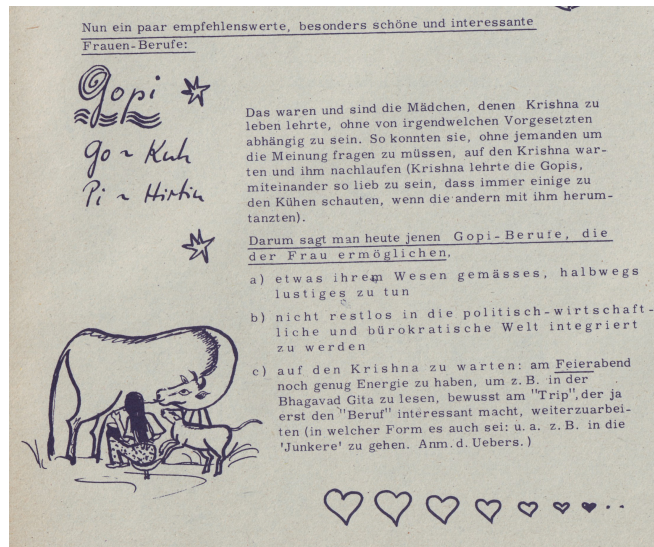 Nun ein paar empfehlenswerte, besonders schöne und interessante
Frauen-Berufe:
Gopi
Go ~ Kuh
Pi ~ Hirtin
Das waren und sind die Mädchen, denen Krishna zu
leben lehrte, ohne von irgendwelchen Vorgesetzten
abhängig zu sein. So konnten sie, ohne jemanden um
die Meinung fragen zu müssen, auf den Krishna war-
ten und ihm nachlaufen (Krishna lehrte die Gopis,
miteinander so lieb zu sein, dass immer einige zu
den Kühen schauten, wenn die andern mit ihm herum-
tanzten).
Darum sagt man heute jenen Gopi-Berufe, die
der Frau ermöglichen,
a) etwas ihrem Wesen gemässes, halbwegs
lustiges zu tun
b) nicht restlos in die politisch-wirtschaft-
liche und bürokratische Welt integriert
zu werden
c) auf den Krishna zu warten: am Feierabend
noch genug Energie zu haben, um z.B. in der
Bhagavad Gita zu lesen, bewusst am "Trip", der ja
erst den "Beruf" interessant macht, weiterzuarbei-
ten (in welcher Form es auch sei: u.a. z.B. in die
'Junkere' zu gehen. Anm.d.Uebers.)